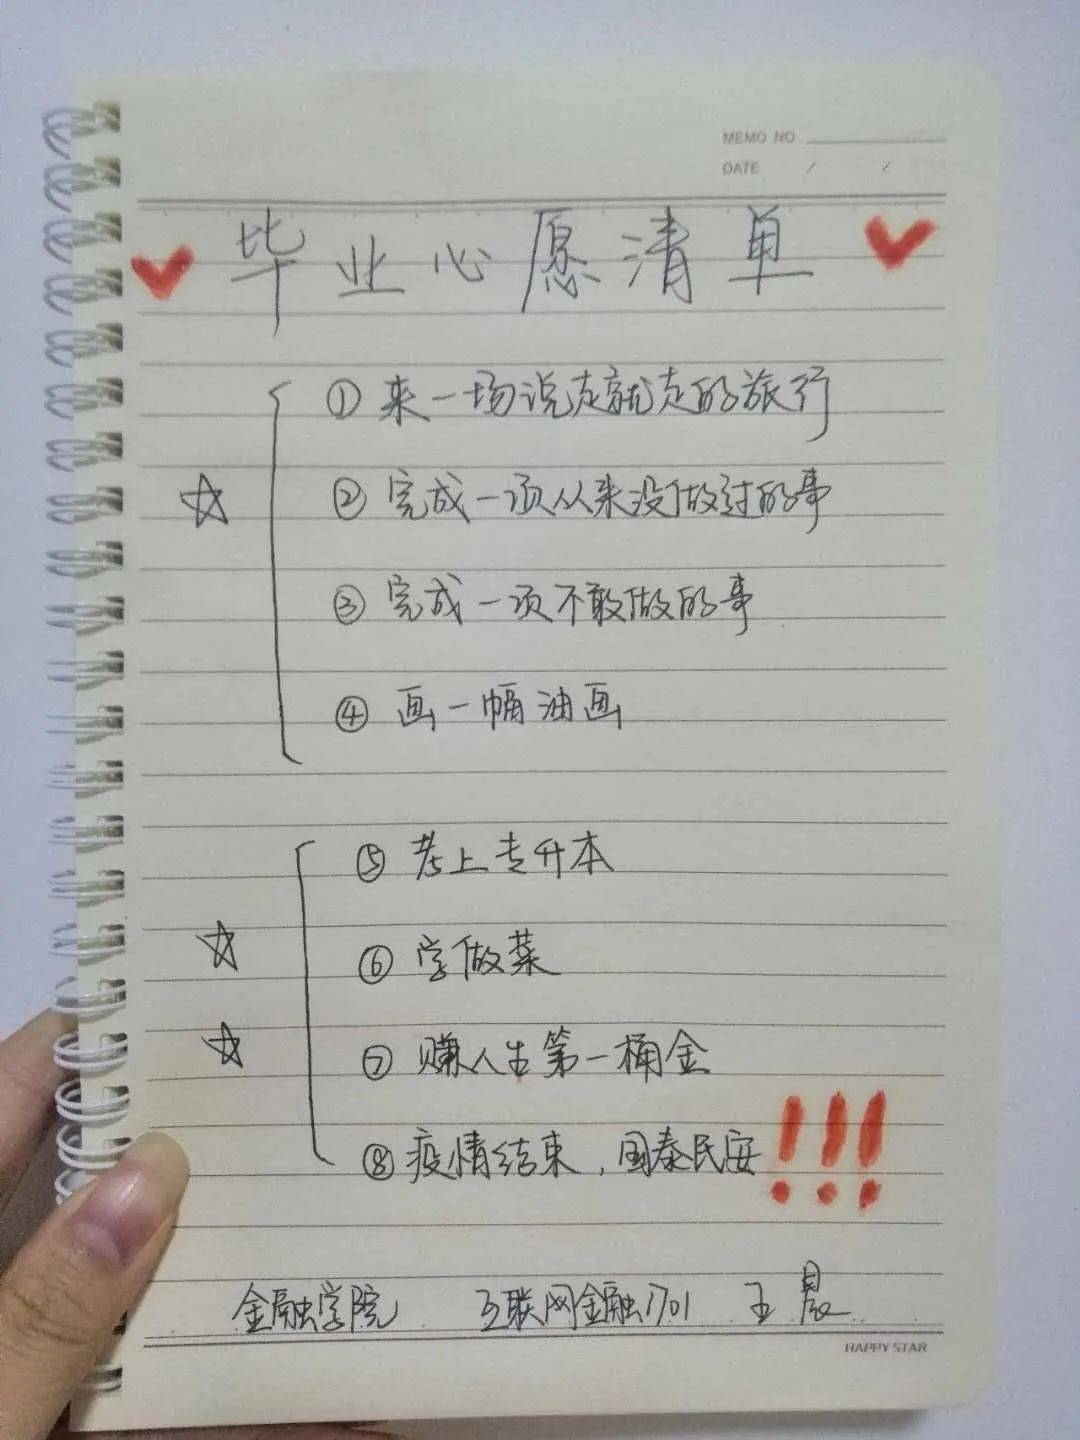 MEMO NO
DATE / /
毕业心愿清单
① 来一场说走就走的旅行
② 完成一项从来没做过的事
③ 完成一项不敢做的事
④ 画一幅油画
⑤ 考上专升本
⑥ 学做菜
⑦ 赚人生第一桶金
⑧ 疫情结束，国泰民安!!!
金融学院 互联网金融1701 王晨
HAPPY STAR